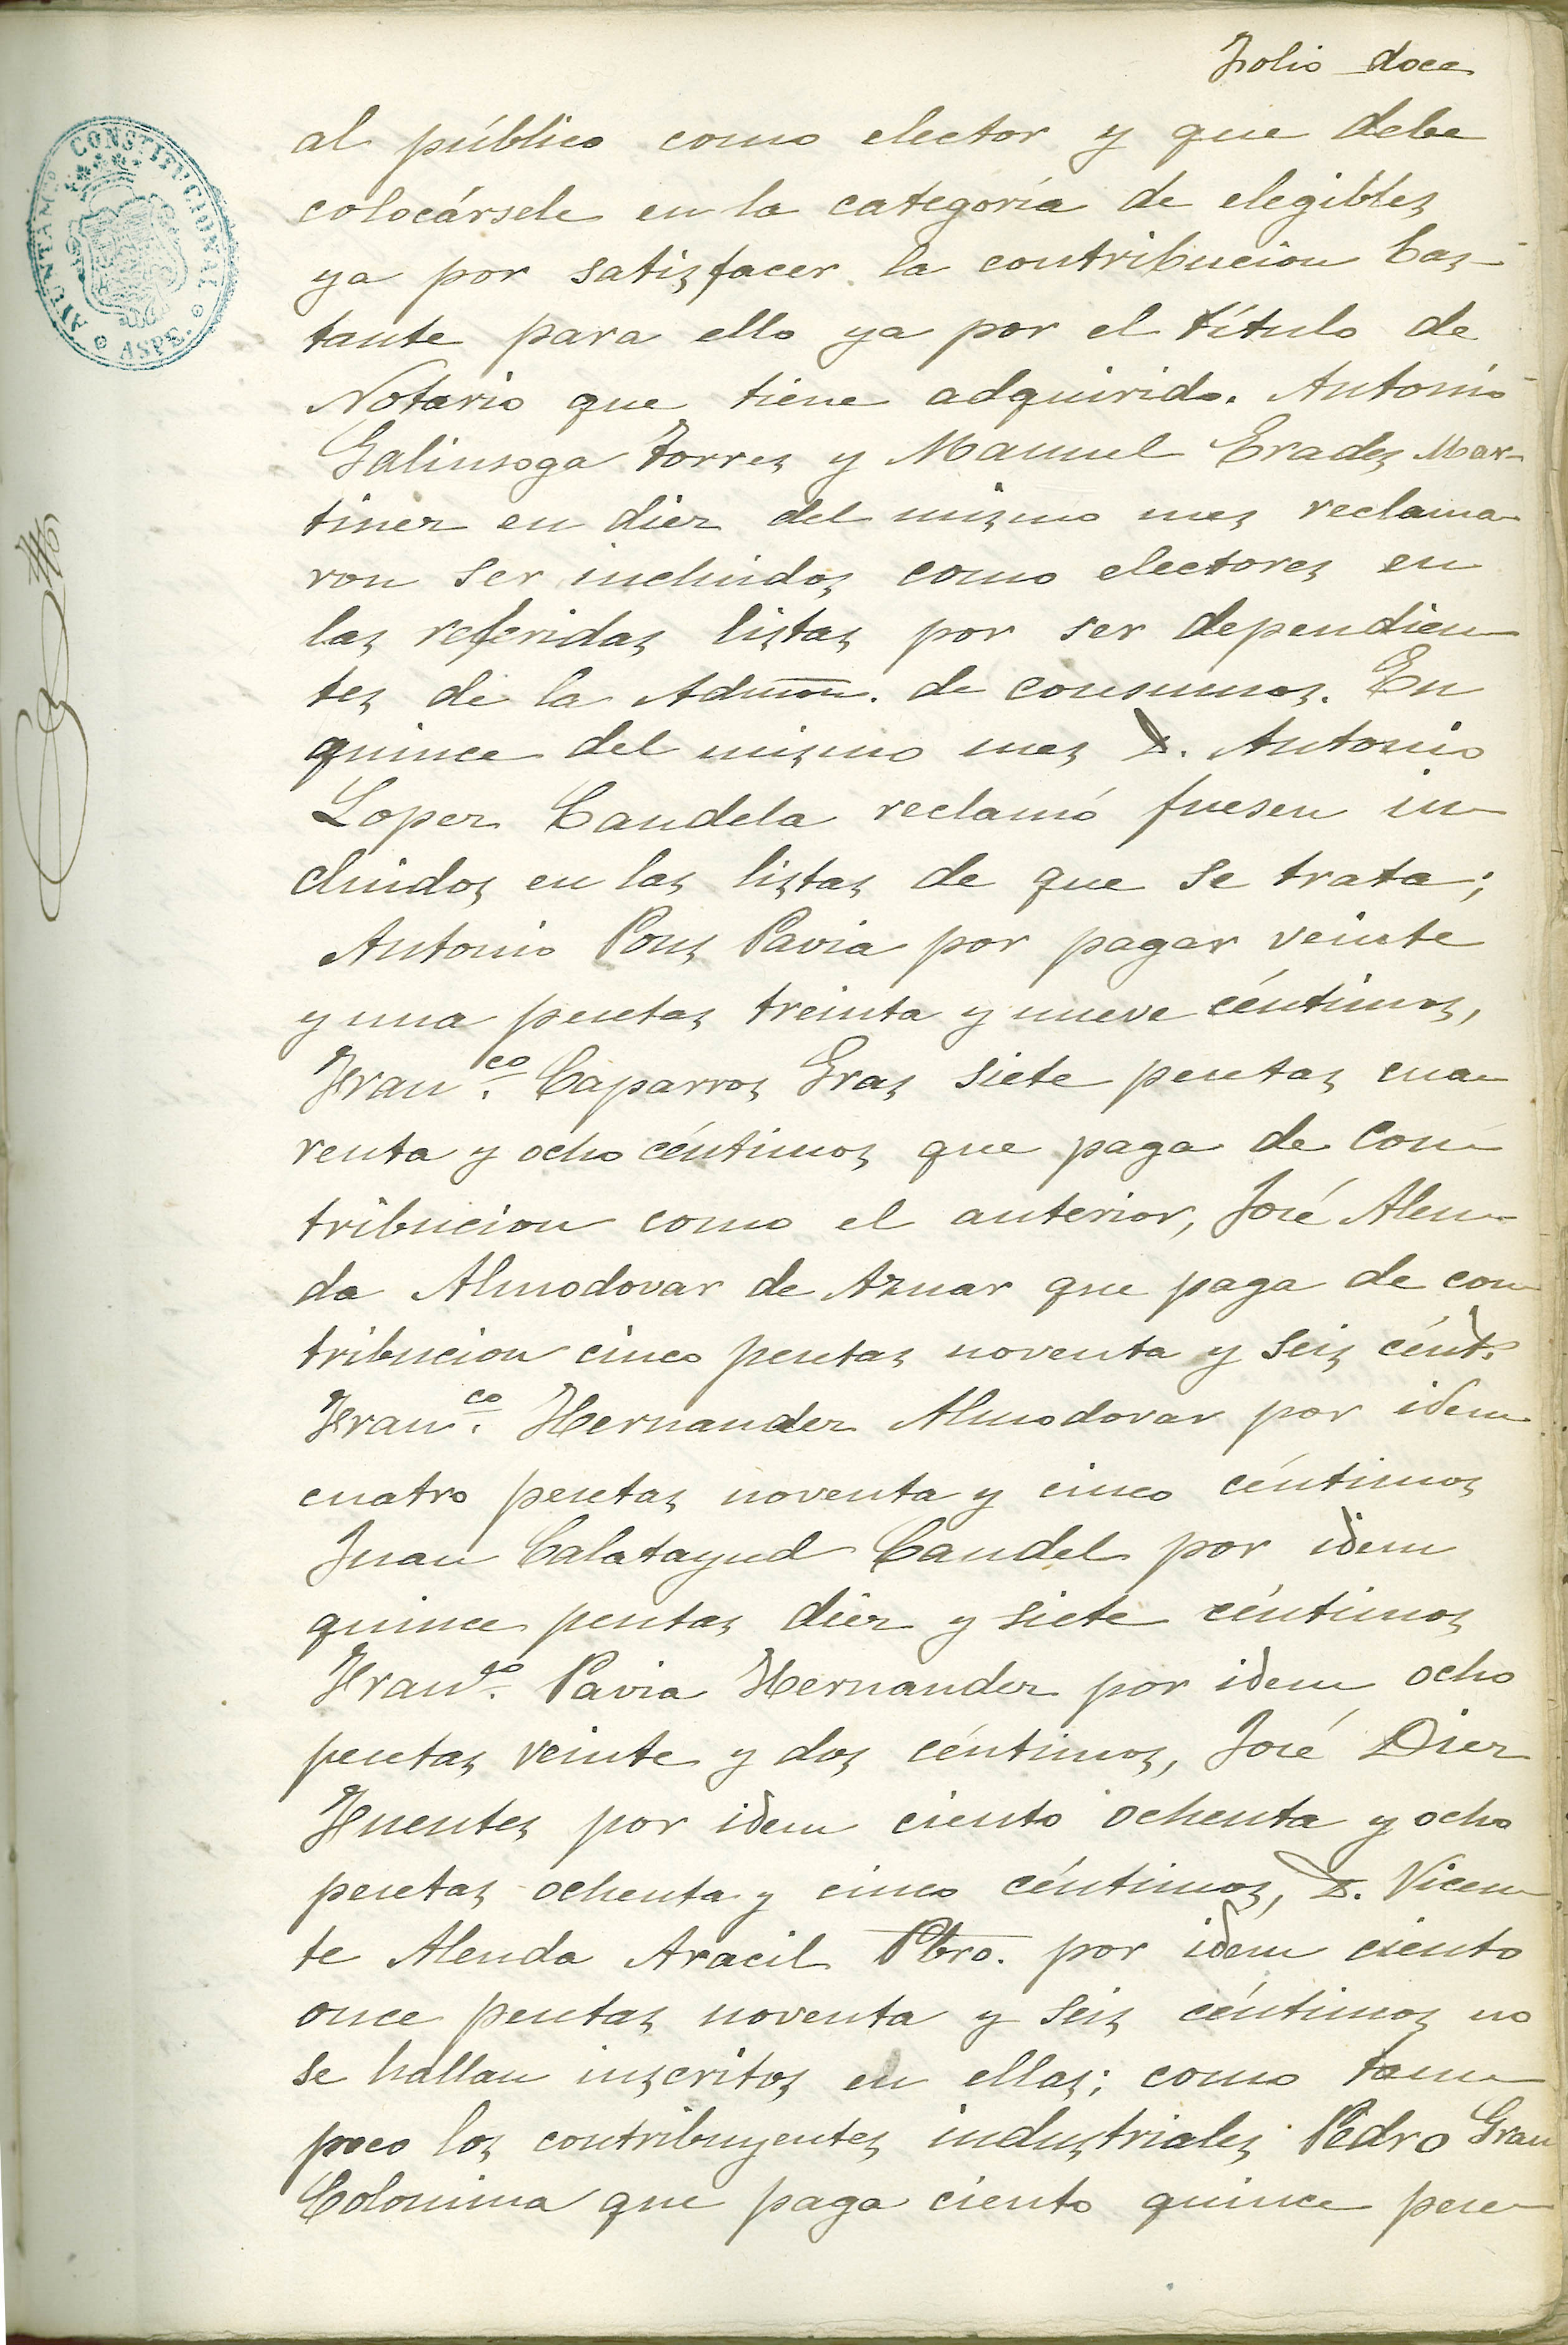 Folio doce
AYUNTAM.º CONSTITUCIONAL
ASPE.
al público como elector y que debe
colocársele en la categoría de elegibles
ya por satisfacer la contribucion bas-
tante para ello ya por el título de
Notario que tiene adquirido. Antonio
Galinsoga Torres y Manuel Erades Mar-
tinez en diez del mismo mes reclama-
ron ser incluidos como electores en
las referidas listas por ser dependien-
tes de la Admon. de consumos. En
quince del mismo mes D. Antonio
Lopez Candela reclamó fuesen in-
cluidos en las listas de que se trata;
Antonio Pons Pavia por pagar veinte
y una pesetas treinta y nueve céntimos,
Fran.co Caparros Gras siete pesetas cua-
renta y ocho céntimos que paga de con-
tribucion como el anterior, José Alen-
da Almodovar de Aznar que paga de con-
tribucion cinco pesetas noventa y seis cént.s
Fran.co Hernandez Almodovar por idem
cuatro pesetas noventa y cinco céntimos
Juan Calatayud Candel por idem
quince pesetas diez y siete céntimos
Fran.co Pavia Hernandez por idem ocho
pesetas veinte y dos céntimos, José Diez
Fuentes por idem ciento ochenta y ocho
pesetas ochenta y cinco céntimos, D. Vicen-
te Alenda Aracil Pbro. por idem ciento
once pesetas noventa y seis céntimos no
se hallan inscritos en ellas; como tam-
poco los contribuyentes industriales Pedro Grau
Colomina que paga ciento quince pese-